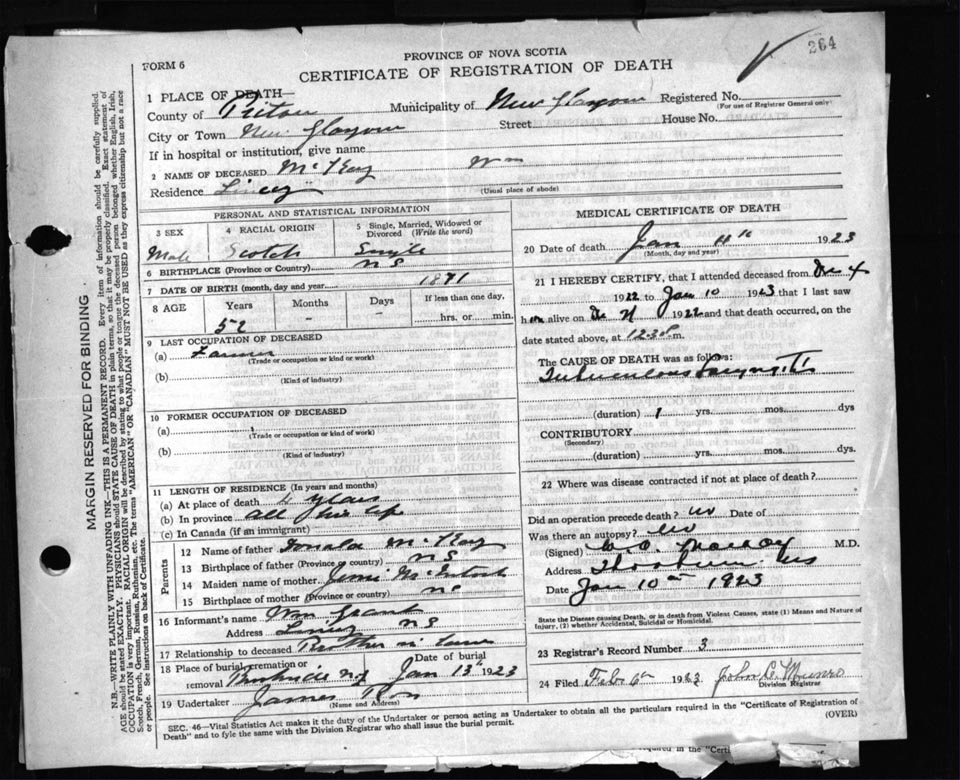 264
PROVINCE OF NOVA SCOTIA
FORM 6
CERTIFICATE OF REGISTRATION OF DEATH
1 PLACE OF DEATH—
County of Pictou Municipality of New Glasgow Registered No.
(For use of Registrar General only)
City or Town New Glasgow Street House No.
If in hospital or institution, give name
2 NAME OF DECEASED McKay Wm
Residence
(Usual place of abode)
PERSONAL AND STATISTICAL INFORMATION
3 SEX
Male
4 RACIAL ORIGIN
Scotch
5 Single, Married, Widowed or Divorced (Write the word)
Single
6 BIRTHPLACE (Province or Country) NS
7 DATE OF BIRTH (month, day and year) 1871
8 AGE Years Months Days If less than one day,
52 - - hrs. or min.
9 LAST OCCUPATION OF DECEASED
(a) Farmer
(Trade or occupation or kind of work)
(b)
(Kind of industry)
10 FORMER OCCUPATION OF DECEASED
(a)
(Trade or occupation or kind of work)
(b)
(Kind of industry)
11 LENGTH OF RESIDENCE (In years and months)
(a) At place of death years
(b) In province all his life
(c) In Canada (if an immigrant)
Parents
12 Name of father Donald McKay
13 Birthplace of father (Province or country) NS
14 Maiden name of mother McIntosh
15 Birthplace of mother (Province or country) NS
16 Informant's name Wm Grant
Address NS
17 Relationship to deceased Brother in law
18 Place of burial, cremation or removal Date of burial
Jan 13th 1923
19 Undertaker James
(Name and Address)
MEDICAL CERTIFICATE OF DEATH
20 Date of death Jan 1923
(Month, day and year)
21 I HEREBY CERTIFY, that I attended deceased from Dec 4
1922 to Jan 10 1923 that I last saw
him alive on Dec 1922 and that death occurred, on
date stated above, at 12.30 P m.
The CAUSE OF DEATH was as follows:
Tuberculous Laryngitis
(duration) 1 yrs. mos. dys
CONTRIBUTORY
(Secondary)
(duration) yrs. mos. dys.
22 Where was disease contracted if not at place of death?
Did an operation precede death? no Date of
Was there an autopsy? no
(Signed) M.D.
Address NS
Date Jan 10th 1923
State the Disease causing Death, or in death from Violent Causes, state (1) Means and Nature of Injury, (2) whether Accidental, Suicidal or Homicidal.
23 Registrar's Record Number 3
24 Filed Feb 6th 192 John Munro
Division Registrar
SEC. 46—Vital Statistics Act makes it the duty of the Undertaker or person acting as Undertaker to obtain all the particulars required in the "Certificate of Registration of
Death" and to fyle the same with the Division Registrar who shall issue the burial permit.
(OVER)
MARGIN RESERVED FOR BINDING
N.B.—WRITE PLAINLY WITH UNFADING INK—THIS IS A PERMANENT RECORD. Every item of information should be carefully supplied.
AGE should be stated EXACTLY. PHYSICIANS should STATE CAUSE OF DEATH in plain terms, so that it may be properly classified. Exact statement of
OCCUPATION is very important. RACIAL ORIGIN will be described by stating to what people or tongue the deceased person belonged whether English, Irish,
Scotch, French, German, Russian, Ruthenian, etc. The terms "AMERICAN" OR "CANADIAN" MUST NOT BE USED as they express citizenship but not a race
or people. See instructions on back of Certificate.